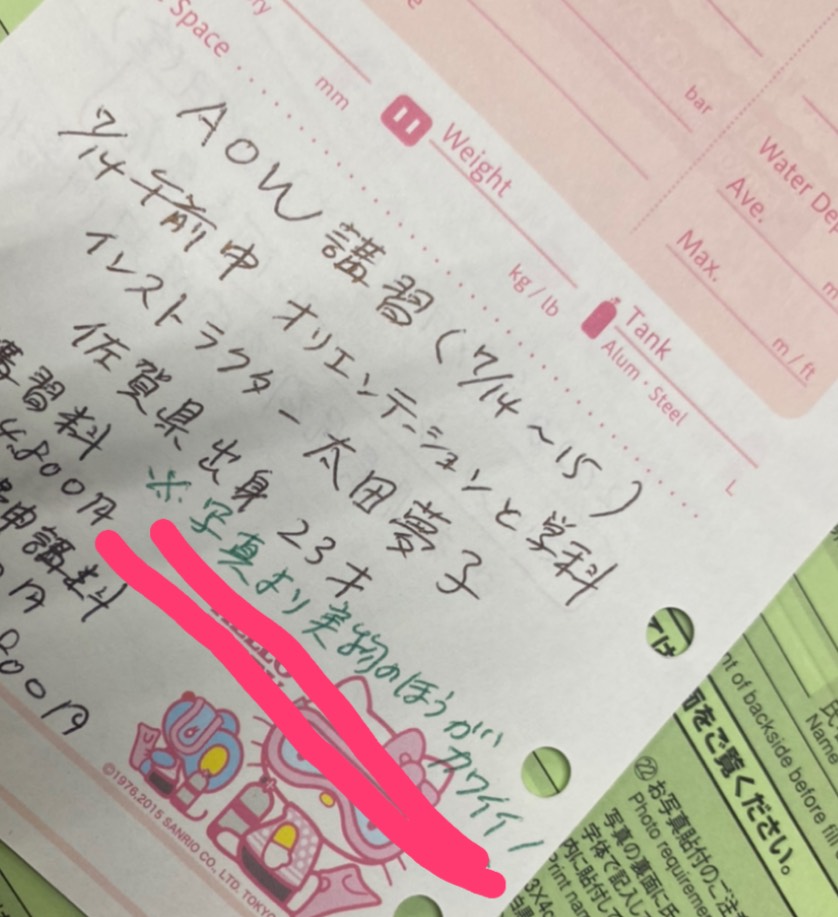 Space
mm
Weight
kg / lb
Tank
Alum・Steel
L
bar
Water De
Ave.
Max.
m / ft
AOW 講習(7/14〜15)
7/14 午前中 オリエンテーションと学科
インストラクター 太田夢子
佐賀県出身 23才
※写真より実物のほうが
カワイイ!
講習料
4,800円
申請料
800円
©1976, 2015 SANRIO CO., LTD. TOKYO
nt of backside before fill
面をご覧ください。
Name
㉒ お写真貼付のご注
Photo requireme
写真の裏面に
字体で記入し
内に貼付して
Print nam